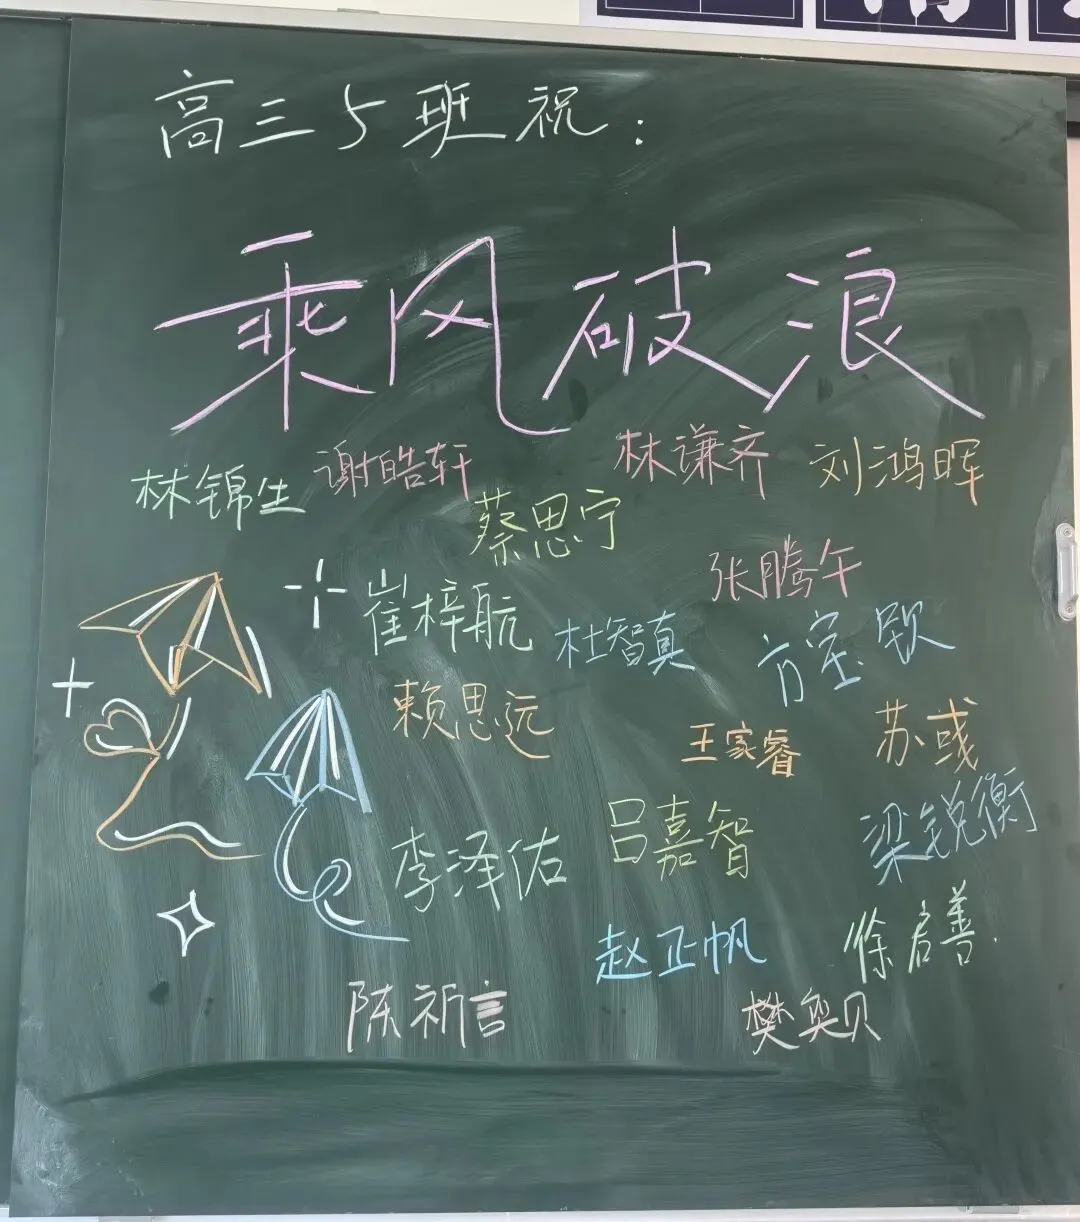 高三5班祝：
乘风破浪
林锦生 谢皓轩 林谦齐 刘鸿晖
蔡思宁
张腾午
崔梓航 杜智真 方宝钦
赖思远 王家睿 苏彧
李泽佑 吕嘉智 梁锐衡
赵正帆 徐启善
陈祈言 樊奥贝